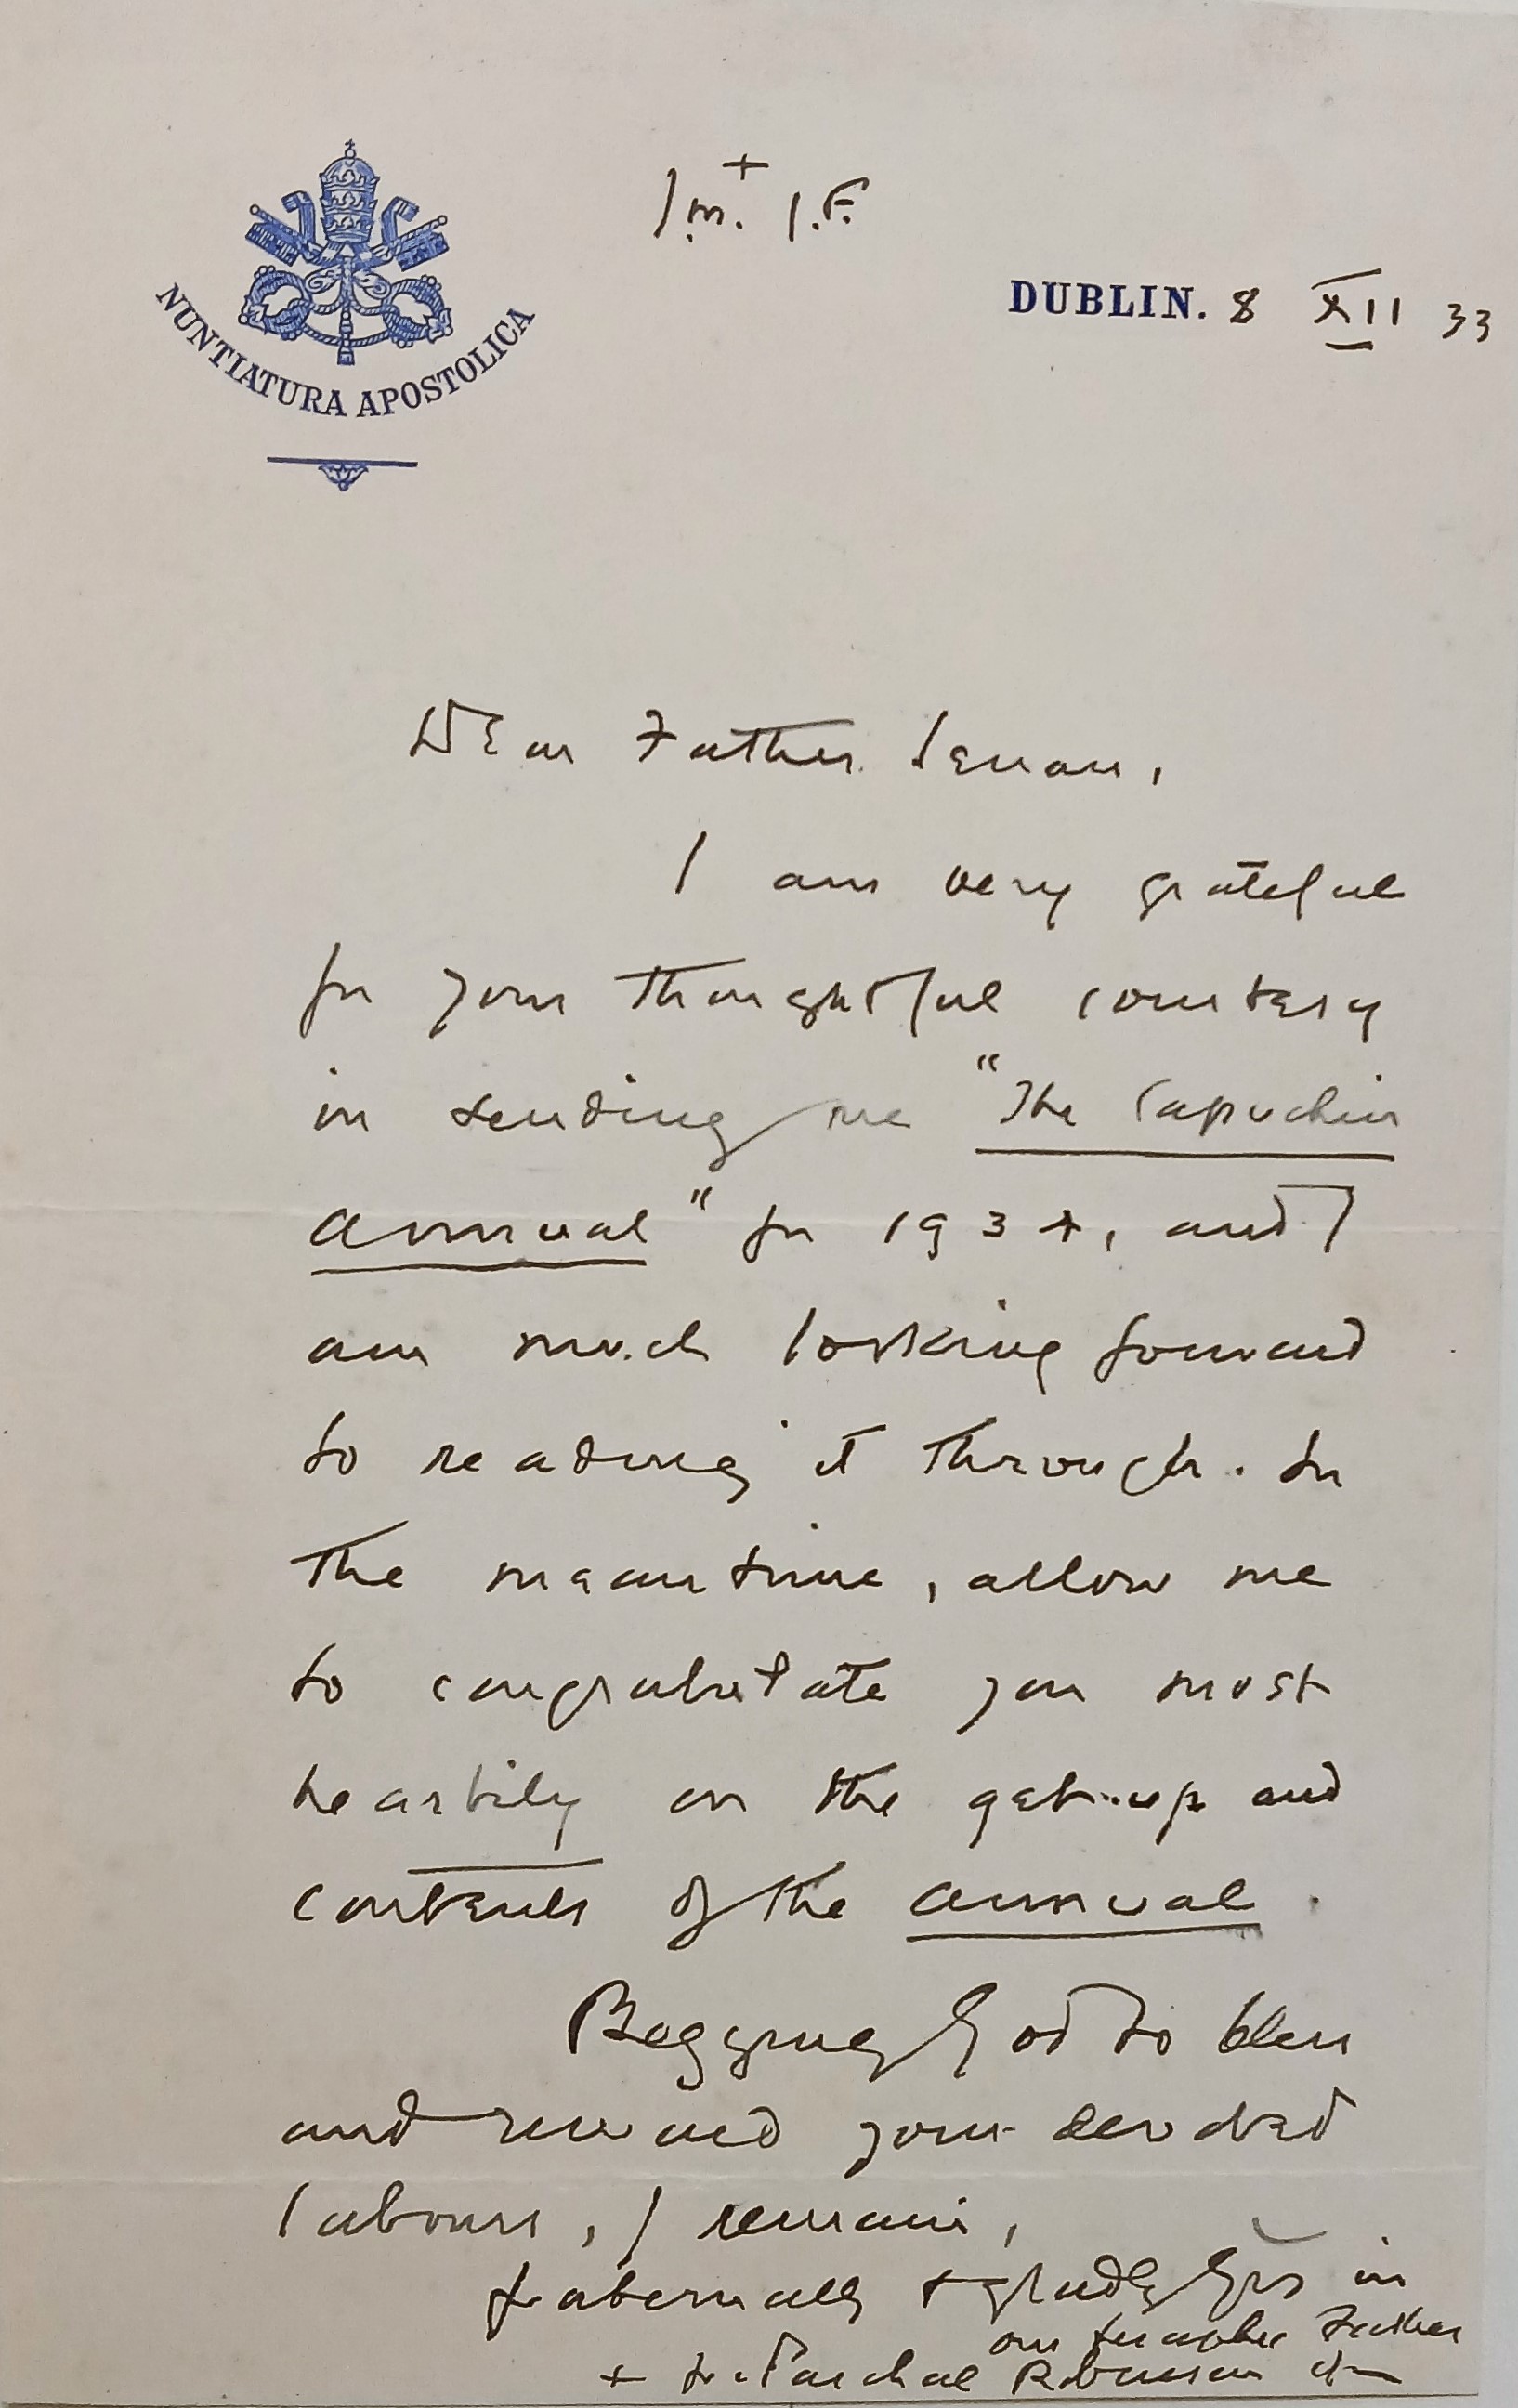 +
J.M. J.F.
NUNTIATURA APOSTOLICA
DUBLIN. 8 XII 33
Dear Father Senan,
I am very grateful
for your thoughtful courtesy
in sending me "The Capuchin
Annual" for 1934, and I
am much looking forward
to reading it through. In
the meantime, allow me
to congratulate you most
heartily on the get-up and
contents of the Annual.
Begging God to bless
and reward your devoted
labours, I remain,
fraternally & gladly yrs in
our Seraphic Father
+ fr. Paschal Robinson ofm